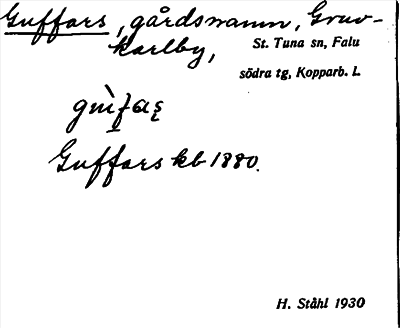 Guffars, gårdsnamn, Gruv-
karlby, St. Tuna sn, Falu
södra tg, Kopparb. l.
Guffars kb 1880.
H. Ståhl 1930